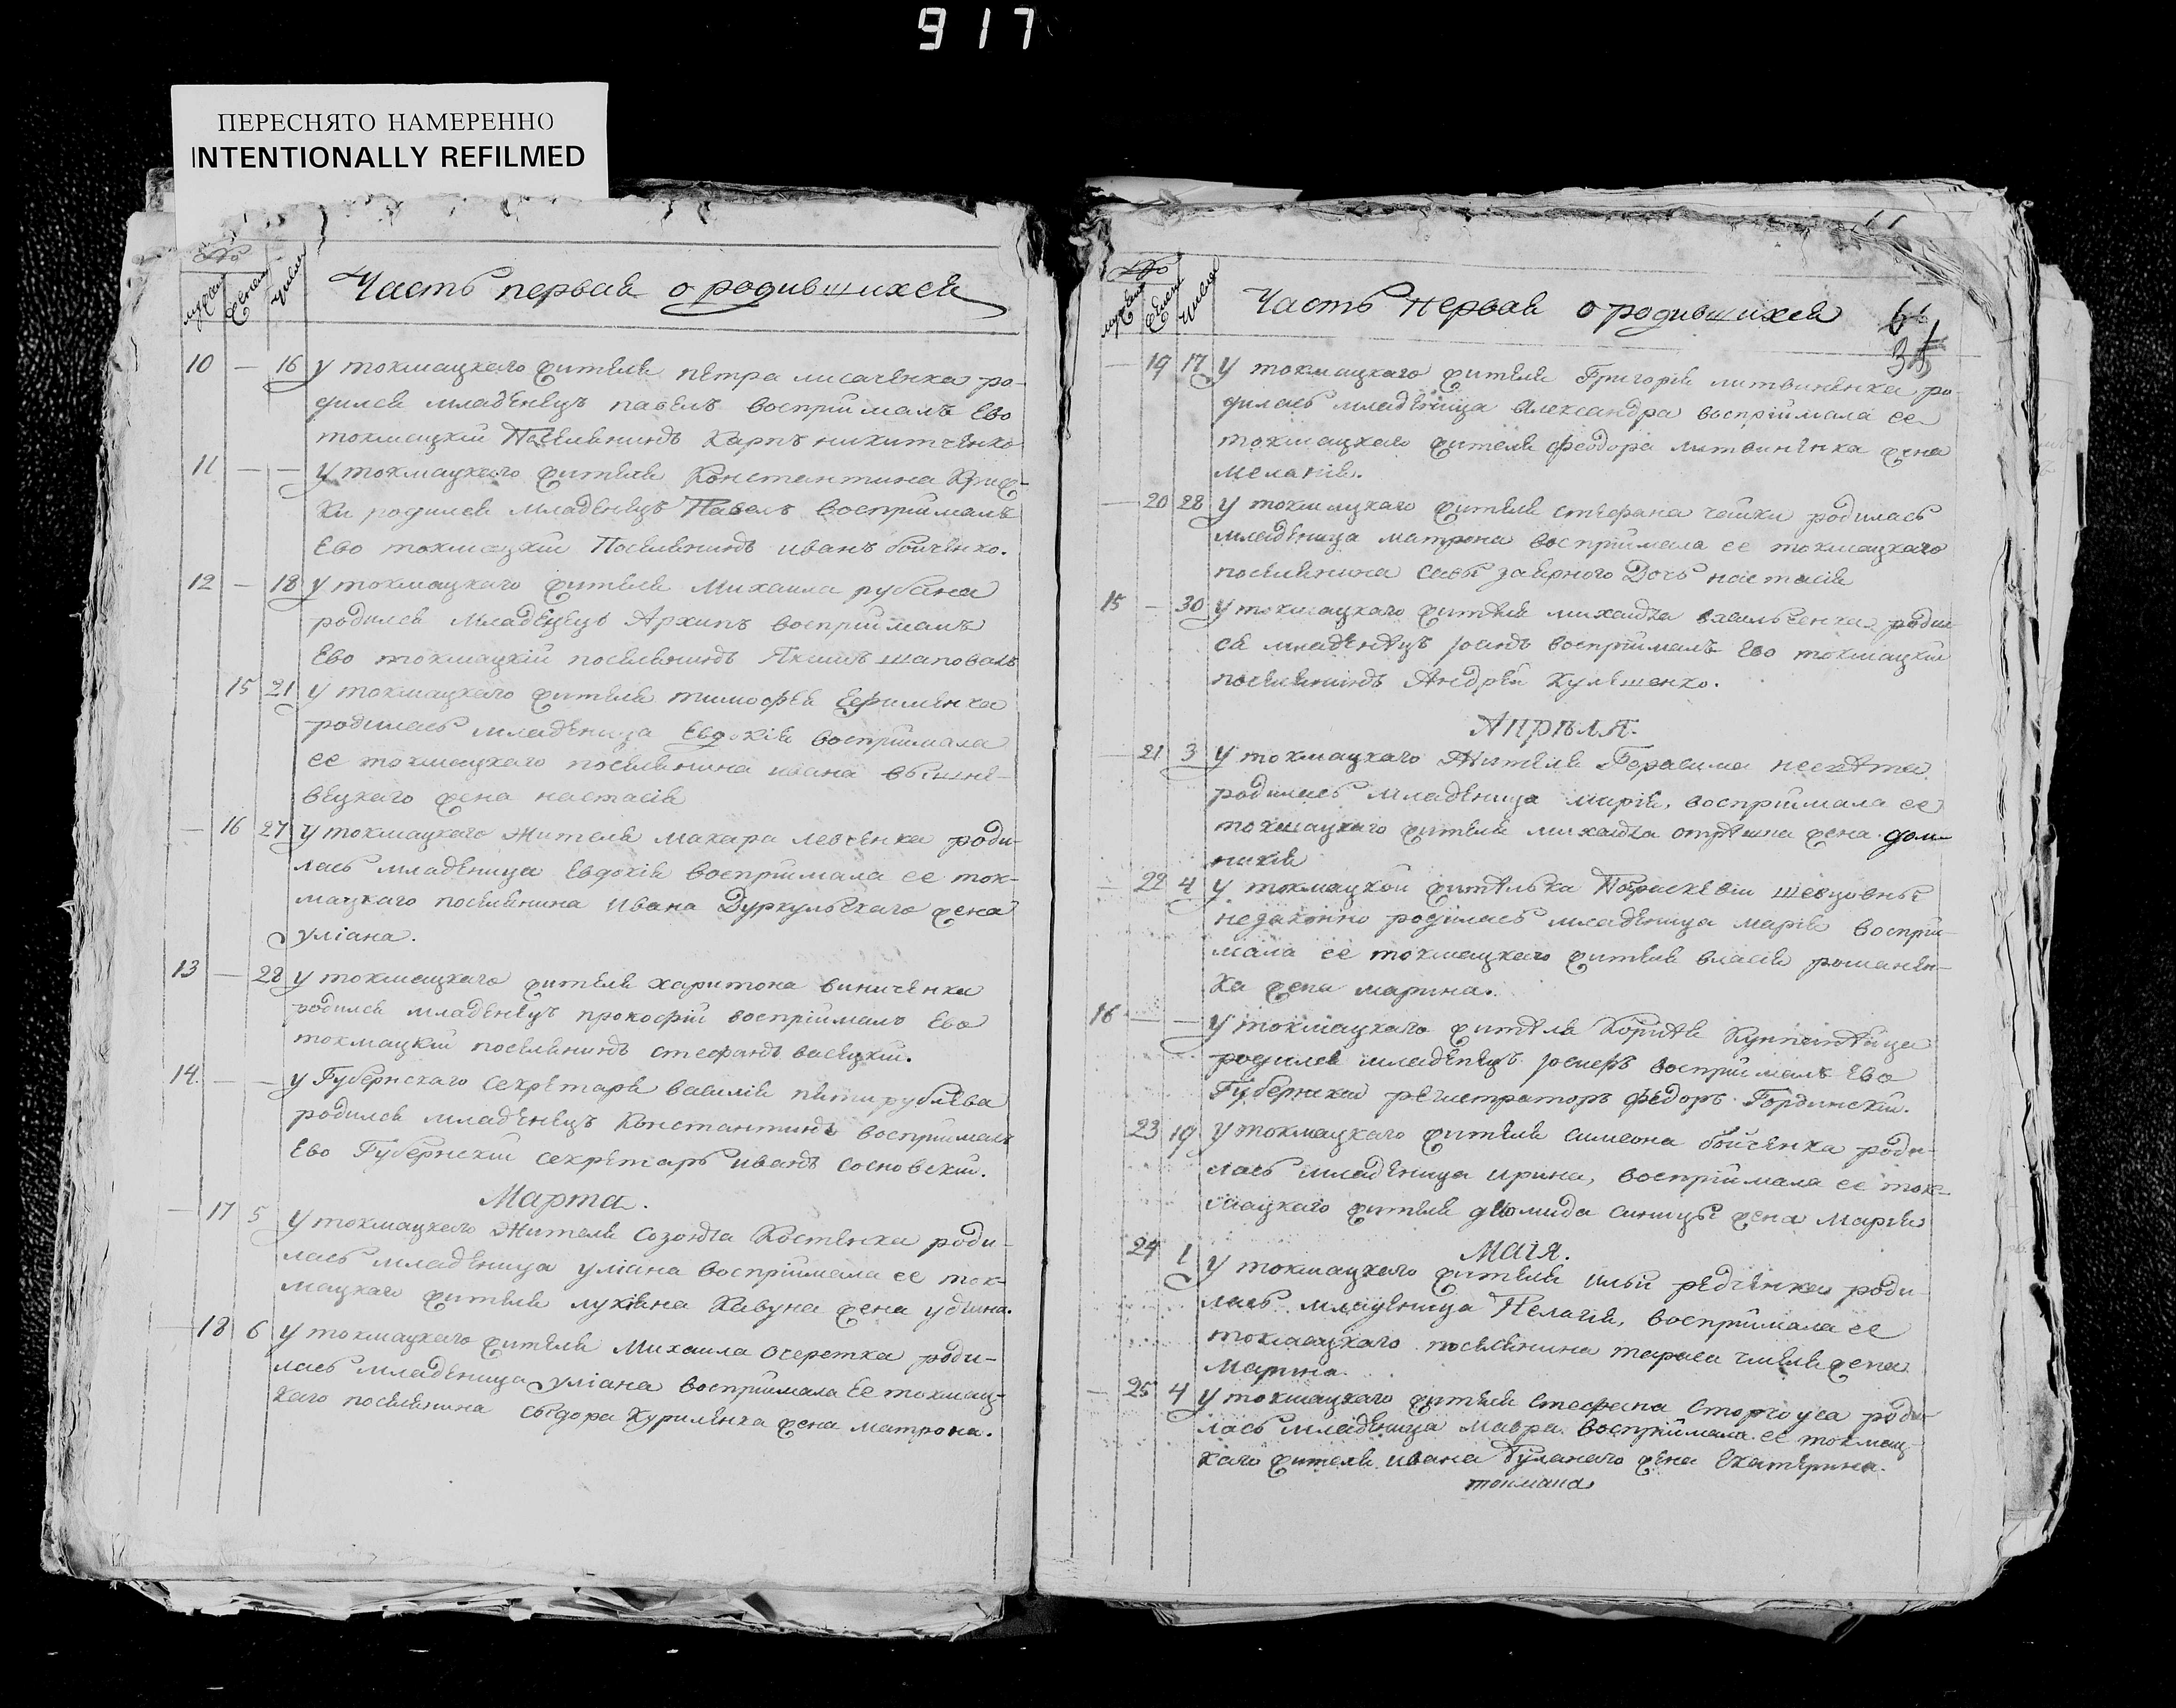 917
ПЕРЕСНЯТО НАМЕРЕННО
INTENTIONALLY REFILMED
№
мужска женска числа
Часть первая о родившихся
10 — 16 у токмацкаго жителя петра лисаченка ро-
дился младенецъ павелъ восприималъ Ево
токмацкій Поселянинъ Карпъ никитченко
11 — — у токмацкаго жителя Константина Криж-
ки родился младенецъ Павелъ восприималъ
Ево токмацкій Поселянинъ иванъ бойченко.
12 — 18 у токмацкаго жителя Михаила рубана
родился младенецъ Архипъ восприималъ
Ево токмацкій поселянинъ Якимъ шаповалъ
15 21 у токмацкаго жителя тимофея Ефименка
родилась младеница Евдокія восприимала
ее токмацкаго поселянина ивана вышне-
вецкаго жена настасія
— 16 27 у токмацкаго жителя макара левченка роди-
лась младеница Евдокія восприимала ее ток-
мацкаго поселянина ивана Дуркульскаго жена
уліана.
13 — 28 у токмацкаго жителя харитона виниченка
родился младенецъ прокофій восприималъ Ево
токмацкій поселянинъ стефанъ васецкій.
14. — — у Губернскаго секретаря василія пятирублева
родился младенецъ Константинъ восприималъ
Ево Губернскій секретарь иванъ сосновскій.
Марта.
— 17 5 у токмацкаго жителя созонта Костенка роди-
лась младеница уліана восприимала ее ток-
мацкаго жителя лукіяна Кавуна жена
— 18 6 у токмацкаго жителя Михаила очеретка роди-
лась младеница уліана восприимала Ее токмац-
каго поселянина сыдора Куриленка жена матрона.
№
мужска женска числа
Часть первая о родившихся
— 19 17 у токмацкаго жителя Григорія литвиненка ро-
дилась младеница Александра восприимала ее
токмацкаго жителя феодора литвиненка жена
меланія.
— 20 28 у токмацкаго жителя стефана чайки родилась
младеница матрона восприимала ее токмацкаго
поселянина савы Дочь настасія
15 — 30 у токмацкаго жителя михаила васильченка роди
ся младенецъ іоанъ восприималъ Ево токмацкій
поселянинъ Андрей Кулешенко.
Апреля.
— 21 3 у токмацкаго Жителя Герасима
родилась младеница марія, восприимала ее
токмацкаго жителя михаила жена дом-
никія
— 22 4 у токмацкой жителька Параскевіи шевцовны
незаконно роділась младеница марія восприи-
мала ее токмацкаго жителя власія романен-
ка жена марина.
16 — — у токмацкаго жителя
родился младенецъ іосифъ восприималъ Ево
Губернскій регистраторъ федоръ Гординскій.
23 19 у токмацкаго жителя симеона бойченка роди-
лась младеница ирина, восприимала ее ток-
мацкаго жителя діомида синицы жена Марія
Маія.
24 1 у токмацкаго жителя ильи редченка роди
лась младеница Пелагія, восприимала ее
токмацкаго поселянина тараса жена
Марина
— 25 4 у токмацкаго жителя стефана Сторчоуса роди-
лась младеница мавра восприимала ее токмац-
каго жителя ивана Гуланаго жена Екатерина.